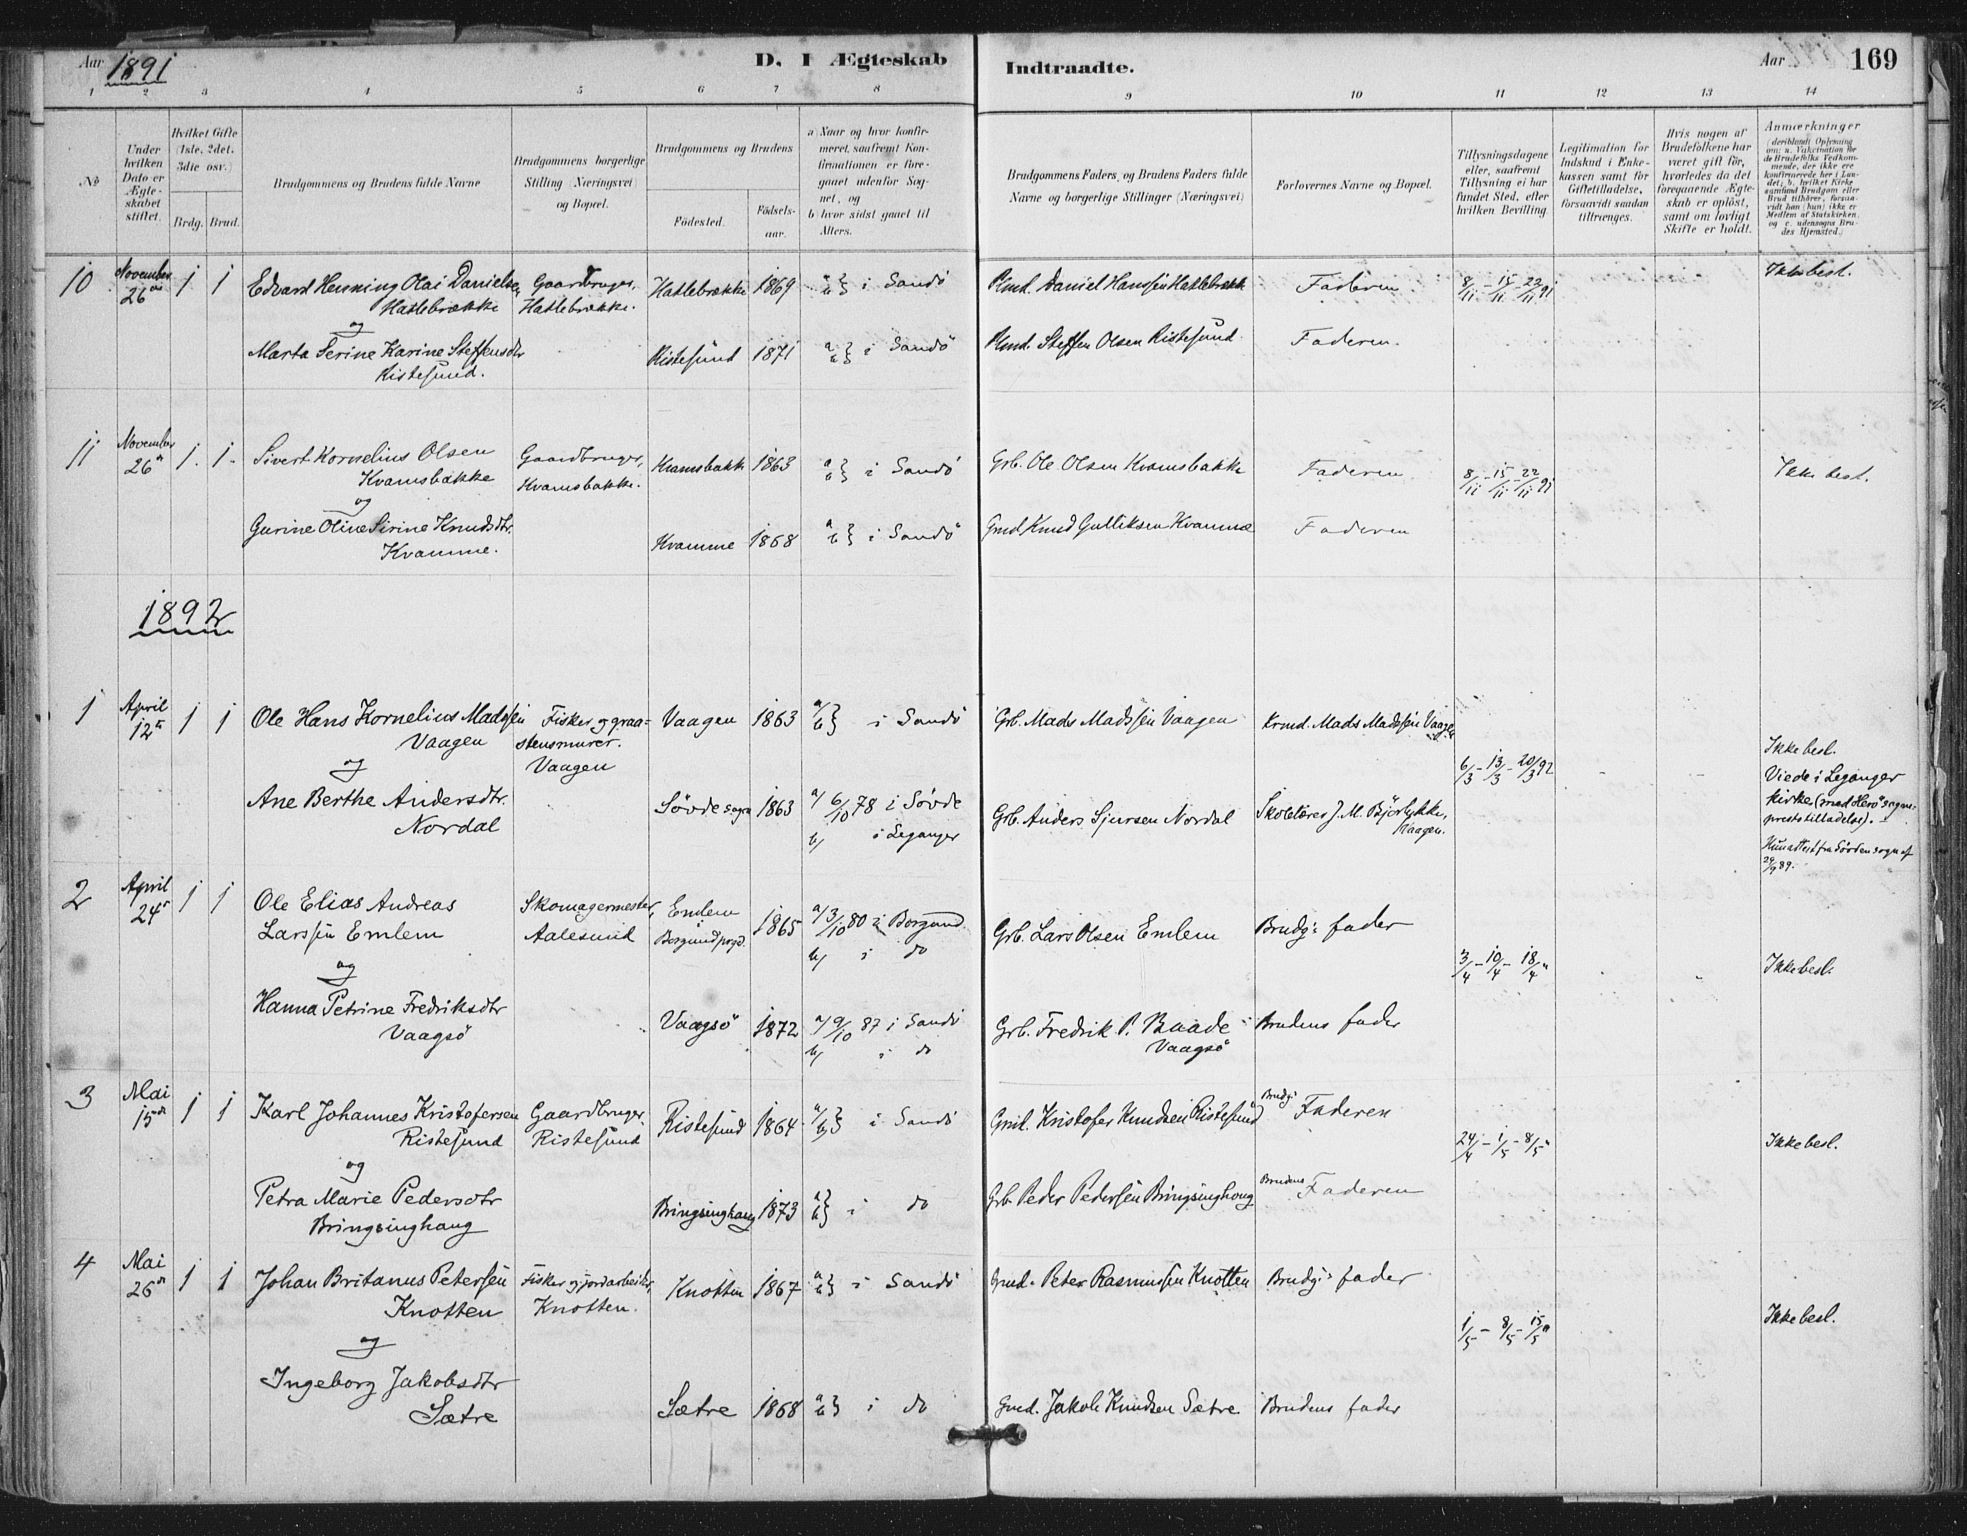 Aar 1891
D. I Ægteskab
Indtraadte.
Aar
169
1 2 3 4 5 6 7 8 9 10 11 12 13 14
No
Under hvilken Dato er Ægteskabet stiftet.
Hvilket Gifte (1ste, 2det, 3die osv.)
Brdg. Brud.
Brudgommens og Brudens fulde Navne
Brudgommens borgerlige Stilling (Næringsvei) og Bopæl.
Brudgommens og Brudens
Fødested.
Fødselsaar.
a Naar og hvor konfirmeret, saafremt Konfirmationen er foregaaet udenfor Sognet, og
b hvor sidst gaaet til Alters.
Brudgommens Faders og Brudens Faders fulde Navne og borgerlige Stillinger (Næringsvei)
Forlovernes Navne og Bopæl.
Tillysningsdagene eller, saafremt Tillysning ei har fundet Sted, efter hvilken Bevilling
Legitimation for Indskud i Enkekassen samt for Giftetilladelse, forsaavidt saadan tiltrænges.
Hvis nogen af Brudefolkene har været gift før, hvorledes da det foregaaende Ægteskab er opløst, samt om lovligt Skifte er holdt.
Anmærkninger
(deriblandt Oplysning om: a. Vakcination for de Brudefolks Vedkommende, der ikke ere konfirmerede her i Landet; b. hvilket Kirkesamfund Brudgom eller Brud tilhører, forsaavidt han (hun) ikke er Medlem af Statskirken, og c. udensogns Brudes Hjemsted.)
10 November 26de 1 1 Edvard Henning Olai Danielsen Gaardbruger, Hatlebrække 1869 a b} i Sandö Daniel Hanssen Hatlebrekk Faderen 8/11 - 15/11 - 22/11 91 Ikke besl.
Hatlebrække Hatlebrække.
og
Marta Serine Karine Steffensdtr Ristesund 1871 a b} i Sandö Steffen Olsen Ristesund Faderen.
Ristesund.
11 November 26de 1. 1. Sivert Kornelius Olsen Gaardbruger, Kvamsbakk 1863 a b} i Sandö Grb. Ole Olsen Kvamsbakke Faderen 8/11 - 15/11 - 22/11 91 Ikke besl.
Kvamsbakke Kvamsbakke.
og
Gurine Oline Sirine Knudsdtr. Kvamme 1868 a b} i Sandö Gmd Knud Gulliksen Kvamme Faderen
Kvamme.
1892
1 April 12te 1 1 Ole Hans Kornelius Madssen Fisker og graa= Vaagen 1863 a/ b} i Sandö Grb. Mads Madssen Vaagen Mads Madssen Vaagen
Vaagen stensmurer.
og Vaagen 6/3 - 13/3 - 20/3 92 Ikke besl.
Viede i Leganger
Ane Berthe Andersdtr. Søvde sogn 1863 a/ 6/10 78 i Søvde Grb. Anders Sjursen Nordal Skolelærer J. M. Bjørlykke, kirke (med Herø sogne-
Nordal b/ i Leganger Vaagen. prests tilladelse).
Hun attest fra Søvden sogn af
29/9 89.
2 April 24de 1 1 Ole Elias Andreas Skomagermester, Emlem 1865 a/ 3/10 80 i Borgund Grb. Lars Olsen Emlem Brudg.s fader
Larssen Emlem Aalesund Borgund prgd. b/ i do
og 3/4 - 10/4 - 18/4 " Ikke besl.
Hanna Petrine Fredriksdtr Vaagsö 1872 a/ 9/10 87 i Sandö Grb. Fredrik P. Baade Brudens fader
Vaagsö b/ i do Vaagsö
3 Mai 15de 1 1 Karl Johannes Kristofersen Gaardbruger Ristesund 1864 a/ b} i Sandö Gmd. Kristofer Knudsen Ristesund Brudg.s Faderen
Ristesund Ristesund 24/4 - 1/5 - 8/5 " Ikke besl.
og
Petra Marie Pedersdtr Bringsinghaug 1873 a b} i do Grb. Peder Pedersen Bringsinghaug Brudens Faderen
Bringsinghaug
4 Mai 26de 1 1 Johan Britanus Petersen Fisker og jordarbeider, Knotten 1867 a b} i Sandö Gmd. Peter Rasmussen Knotten Brudg.s fader
Knotten Knotten. 1/5 - 8/5 - 15/5 " Ikke besl.
og
Ingeborg Jakobsdtr Sætre 1868 a b} i do Gmd. Jakob Knudsen Sætre Brudens fader
Sætre